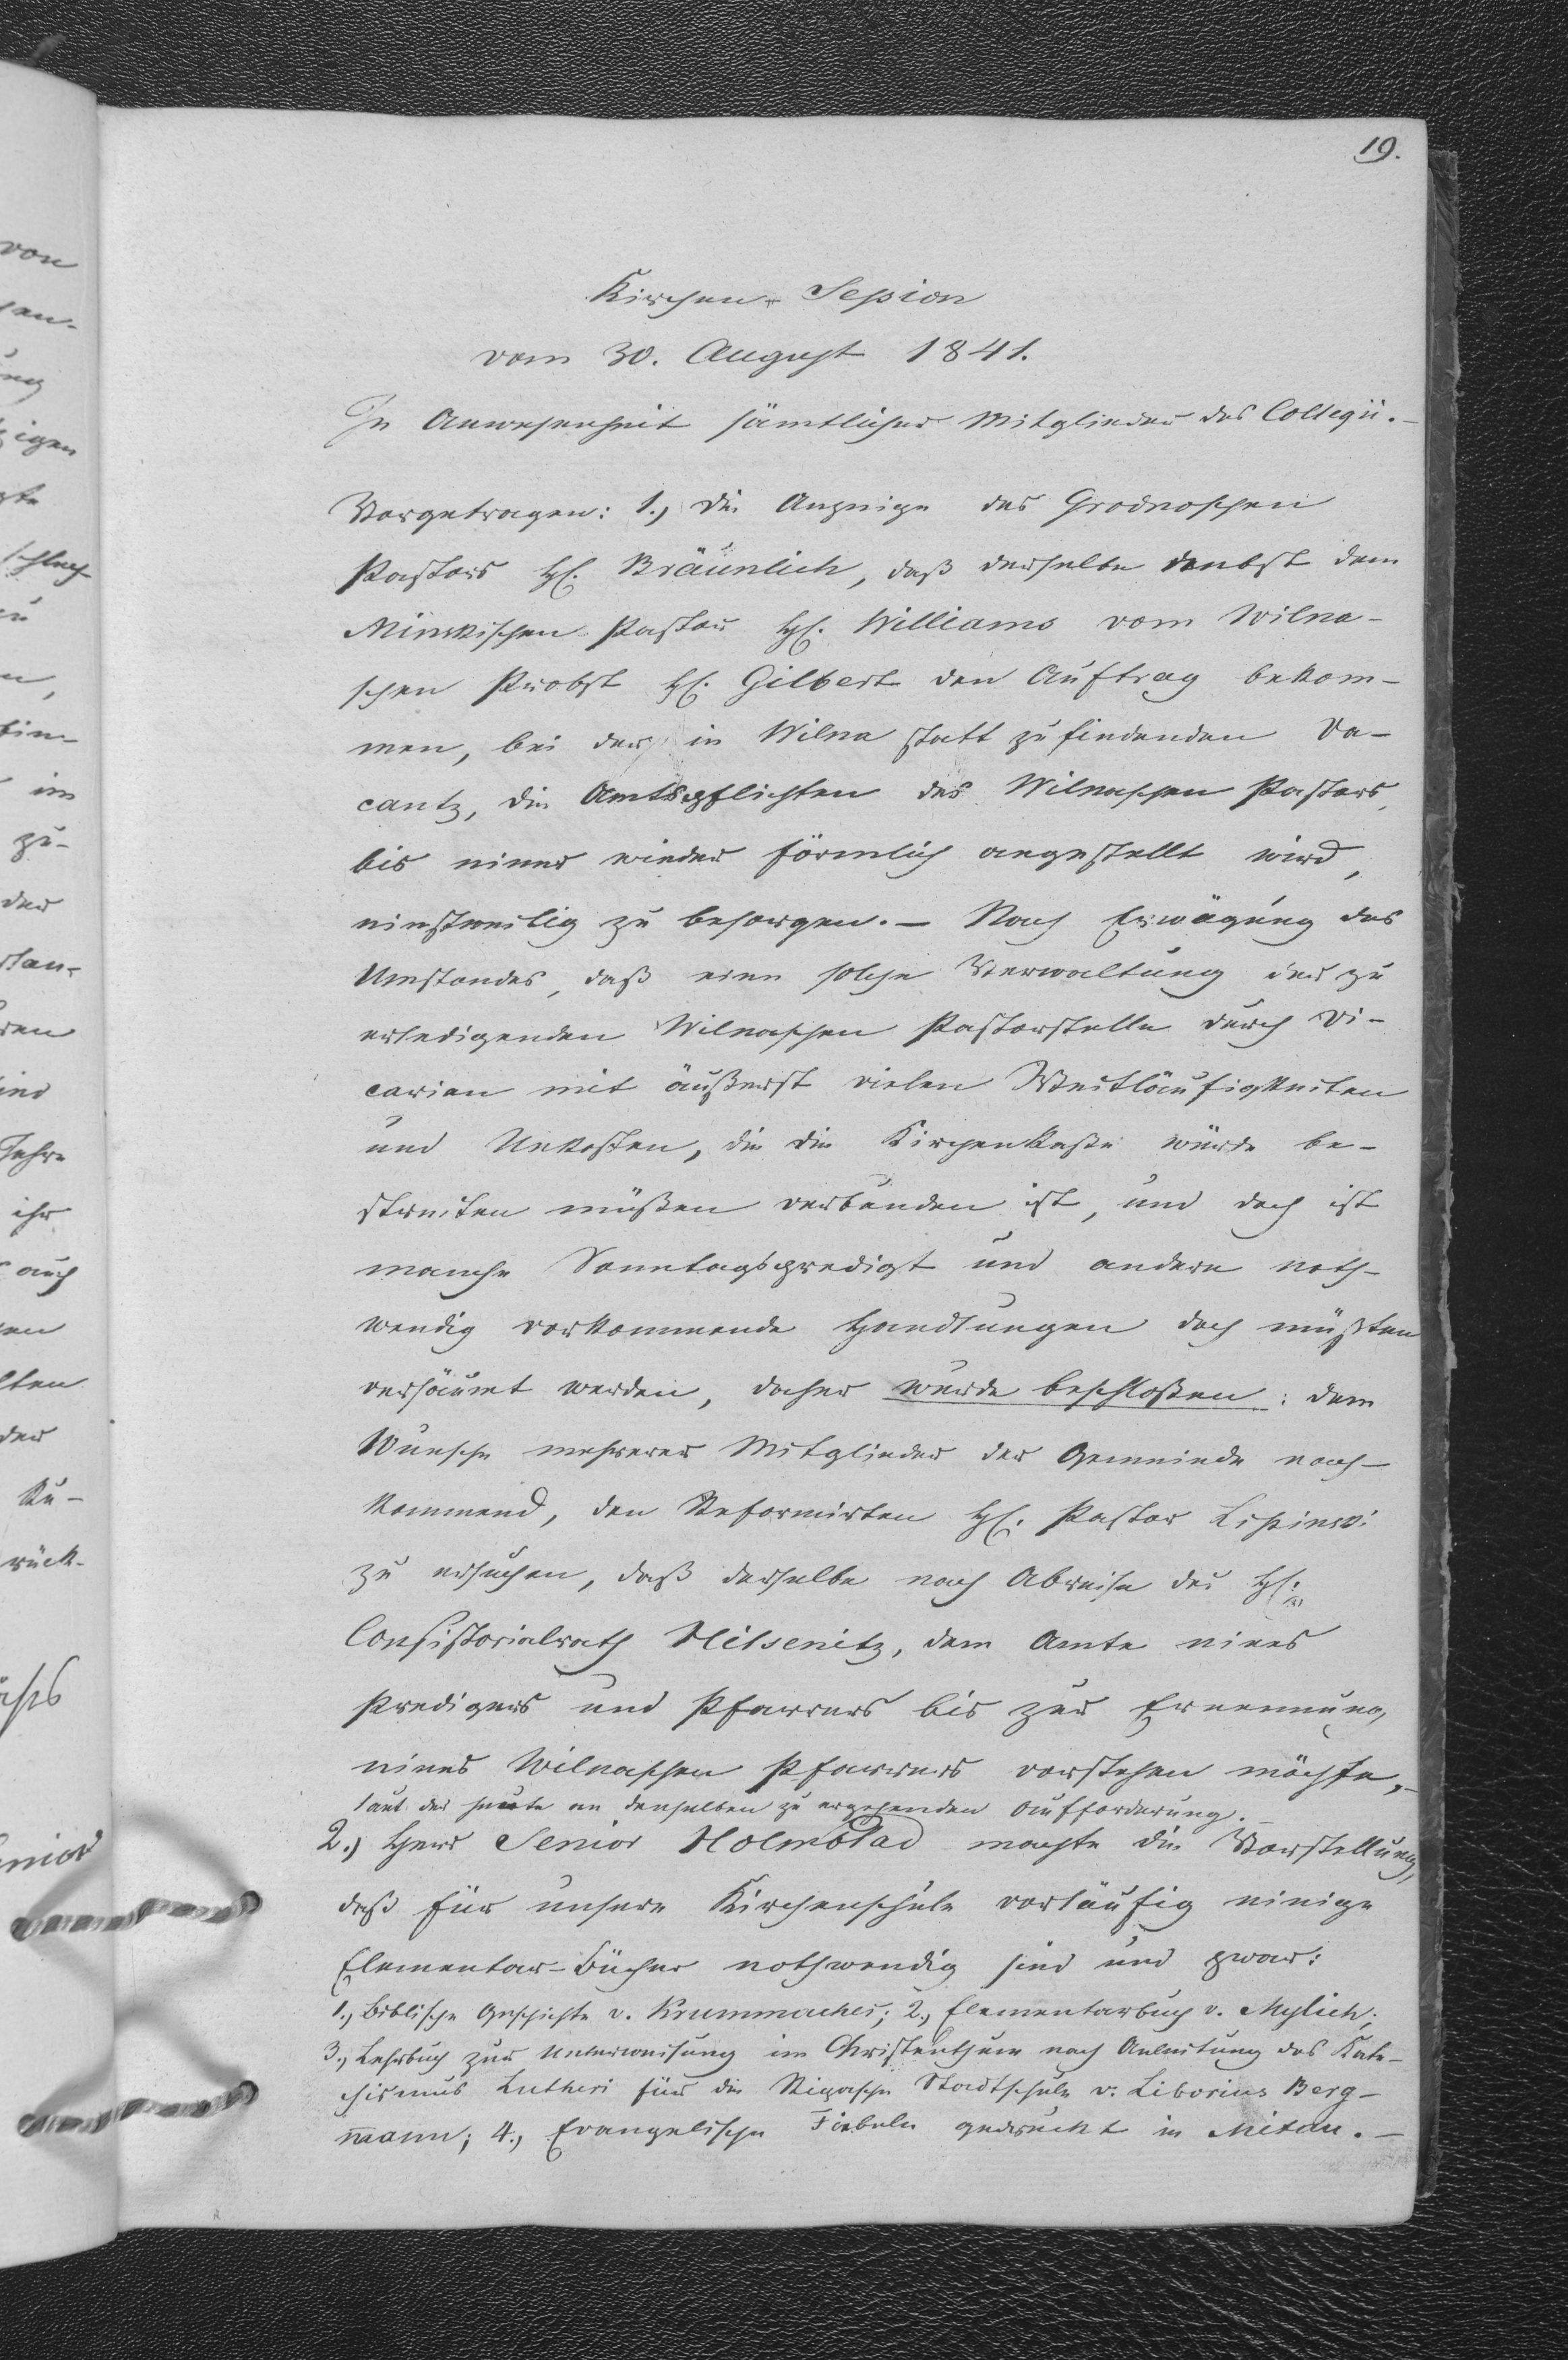 19.
Kirchen-Session
vom 30. August 1841.
In Anwesenheit sämtlicher Mitglieder des Collegii.-
Vorgetragen: 1., Die Anzeige des Grodnoschen
Pastors H. Bräunlich, daß derselbe nebst dem
Minskischen Pastor H. Williams vom Wilna-
schen Probst H. Gilbert den Auftrag bekom-
men, bei der in Wilna statt zu findenden Va-
cantz, die Amtspflichten des Wilnaschen Pastors,
bis einer wieder förmlich angestellt wird,
einstweilig zu besorgen. — Nach Erwägung des
Umstandes, daß eine solche Verwaltung der zu
erledigenden Wilnaschen Pastorstelle durch Vi-
carien mit äußerst vielen Weitläufigkeiten
und Unkosten, die die Kirchenkaße würde be-
streiten müßen verbunden ist, und doch ist
manche Sonntagspredigt und andere noth-
wendig vorkommende Handlungen doch müßten
versäumt werden, daher wurde beschloßen: dem
Wunsche mehrerer Mitglieder der Gemeinde nach-
kommend, den Reformirten H. Pastor Lipinski
zu ersuchen, daß derselbe nach Abreise des H.
Consistorialrath Nitsenitz, dem Amte eines
Predigers und Pfarrers bis zur Ernennung
eines Wilnaschen Pfarrers vorstehen möchte,-
laut der heute an denselben zu ergehenden Aufforderung.-
2.) Herr Senior Holmblad machte die Vorstellung,
daß für unsere Kirchenschule vorläufig einige
Elementar-Bücher nothwendig sind und zwar:
1., Biblische Geschichte v. Krummacher; 2., Elementarbuch v. Mylich;
3., Lehrbuch zur Unterweisung im Christenthum nach Anleitung des Kate-
chismus Lutheri für die Rigasche Stadtschule v. Liborius Berg-
mann; 4., Evangelische Fiebeln gedruckt in Mitau.-